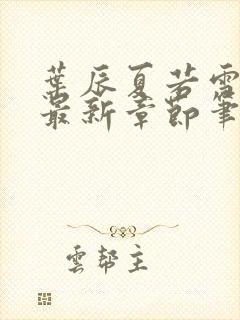 葉辰夏若雪
最新章節筆
雲幫主